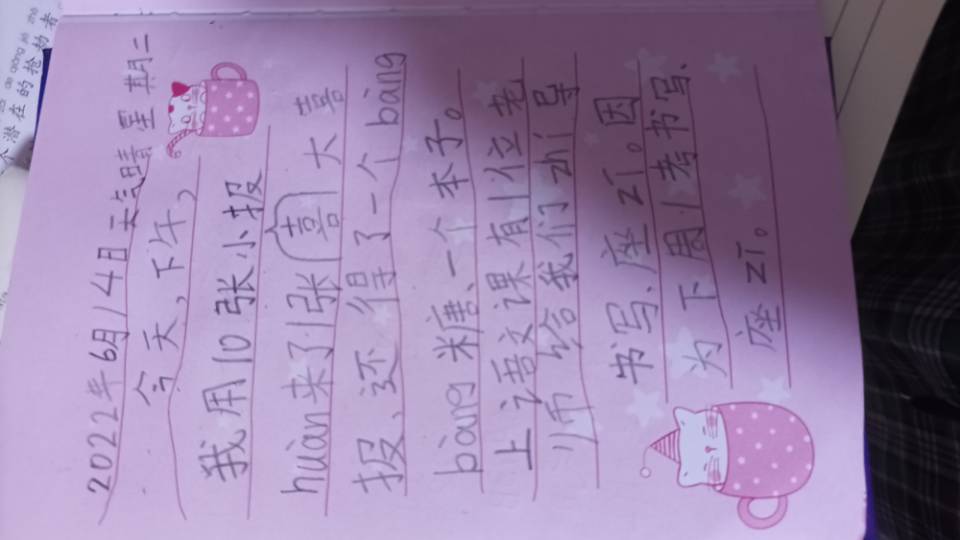 2022年6月14日天气晴星期二
今天,下午,
我用10张小报
huàn来了1张(喜)大喜
报、还得了一个bàng
bàng米糖、一个本子。
上语文课有1位老
师给我们zhǐ导
书写、座zī。因
为下周1考书写、
座zī。
个潜在的抢劫者